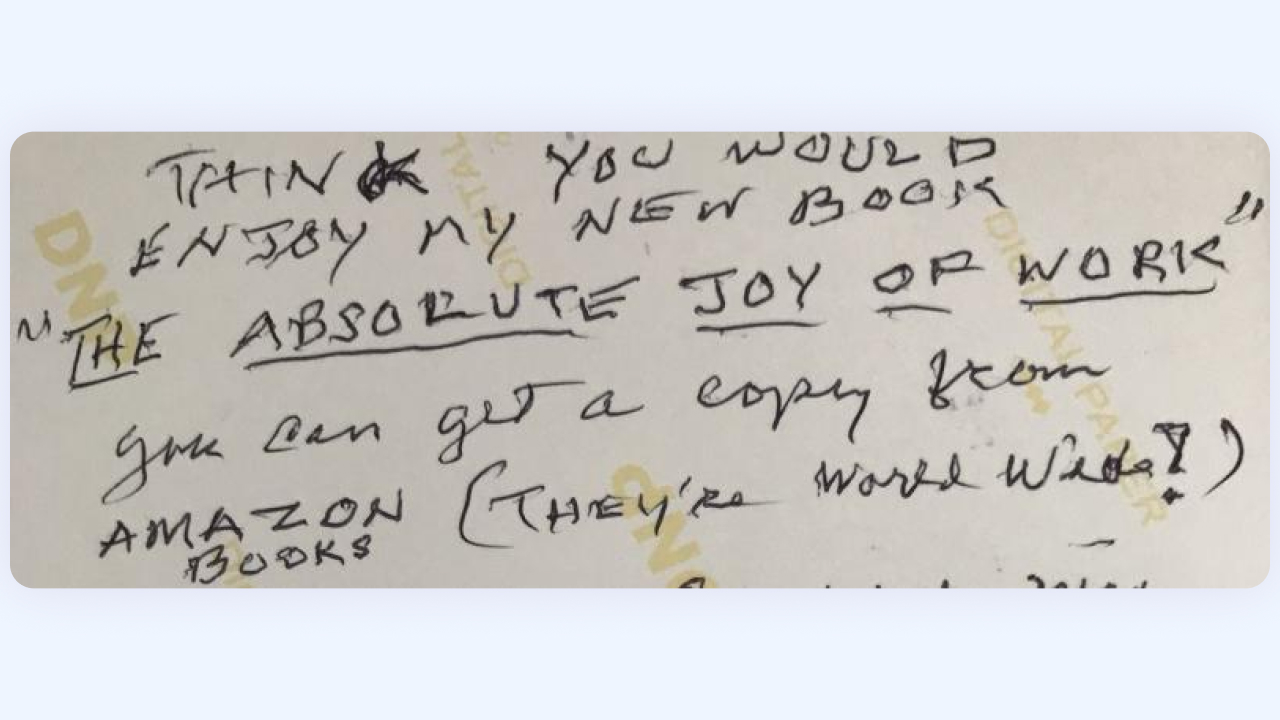 THINK YOU WOULD
ENJOY MY NEW BOOK
"THE ABSOLUTE JOY OF WORK"
you can get a copy from
AMAZON (THEY're World Wide!)
BOOKS